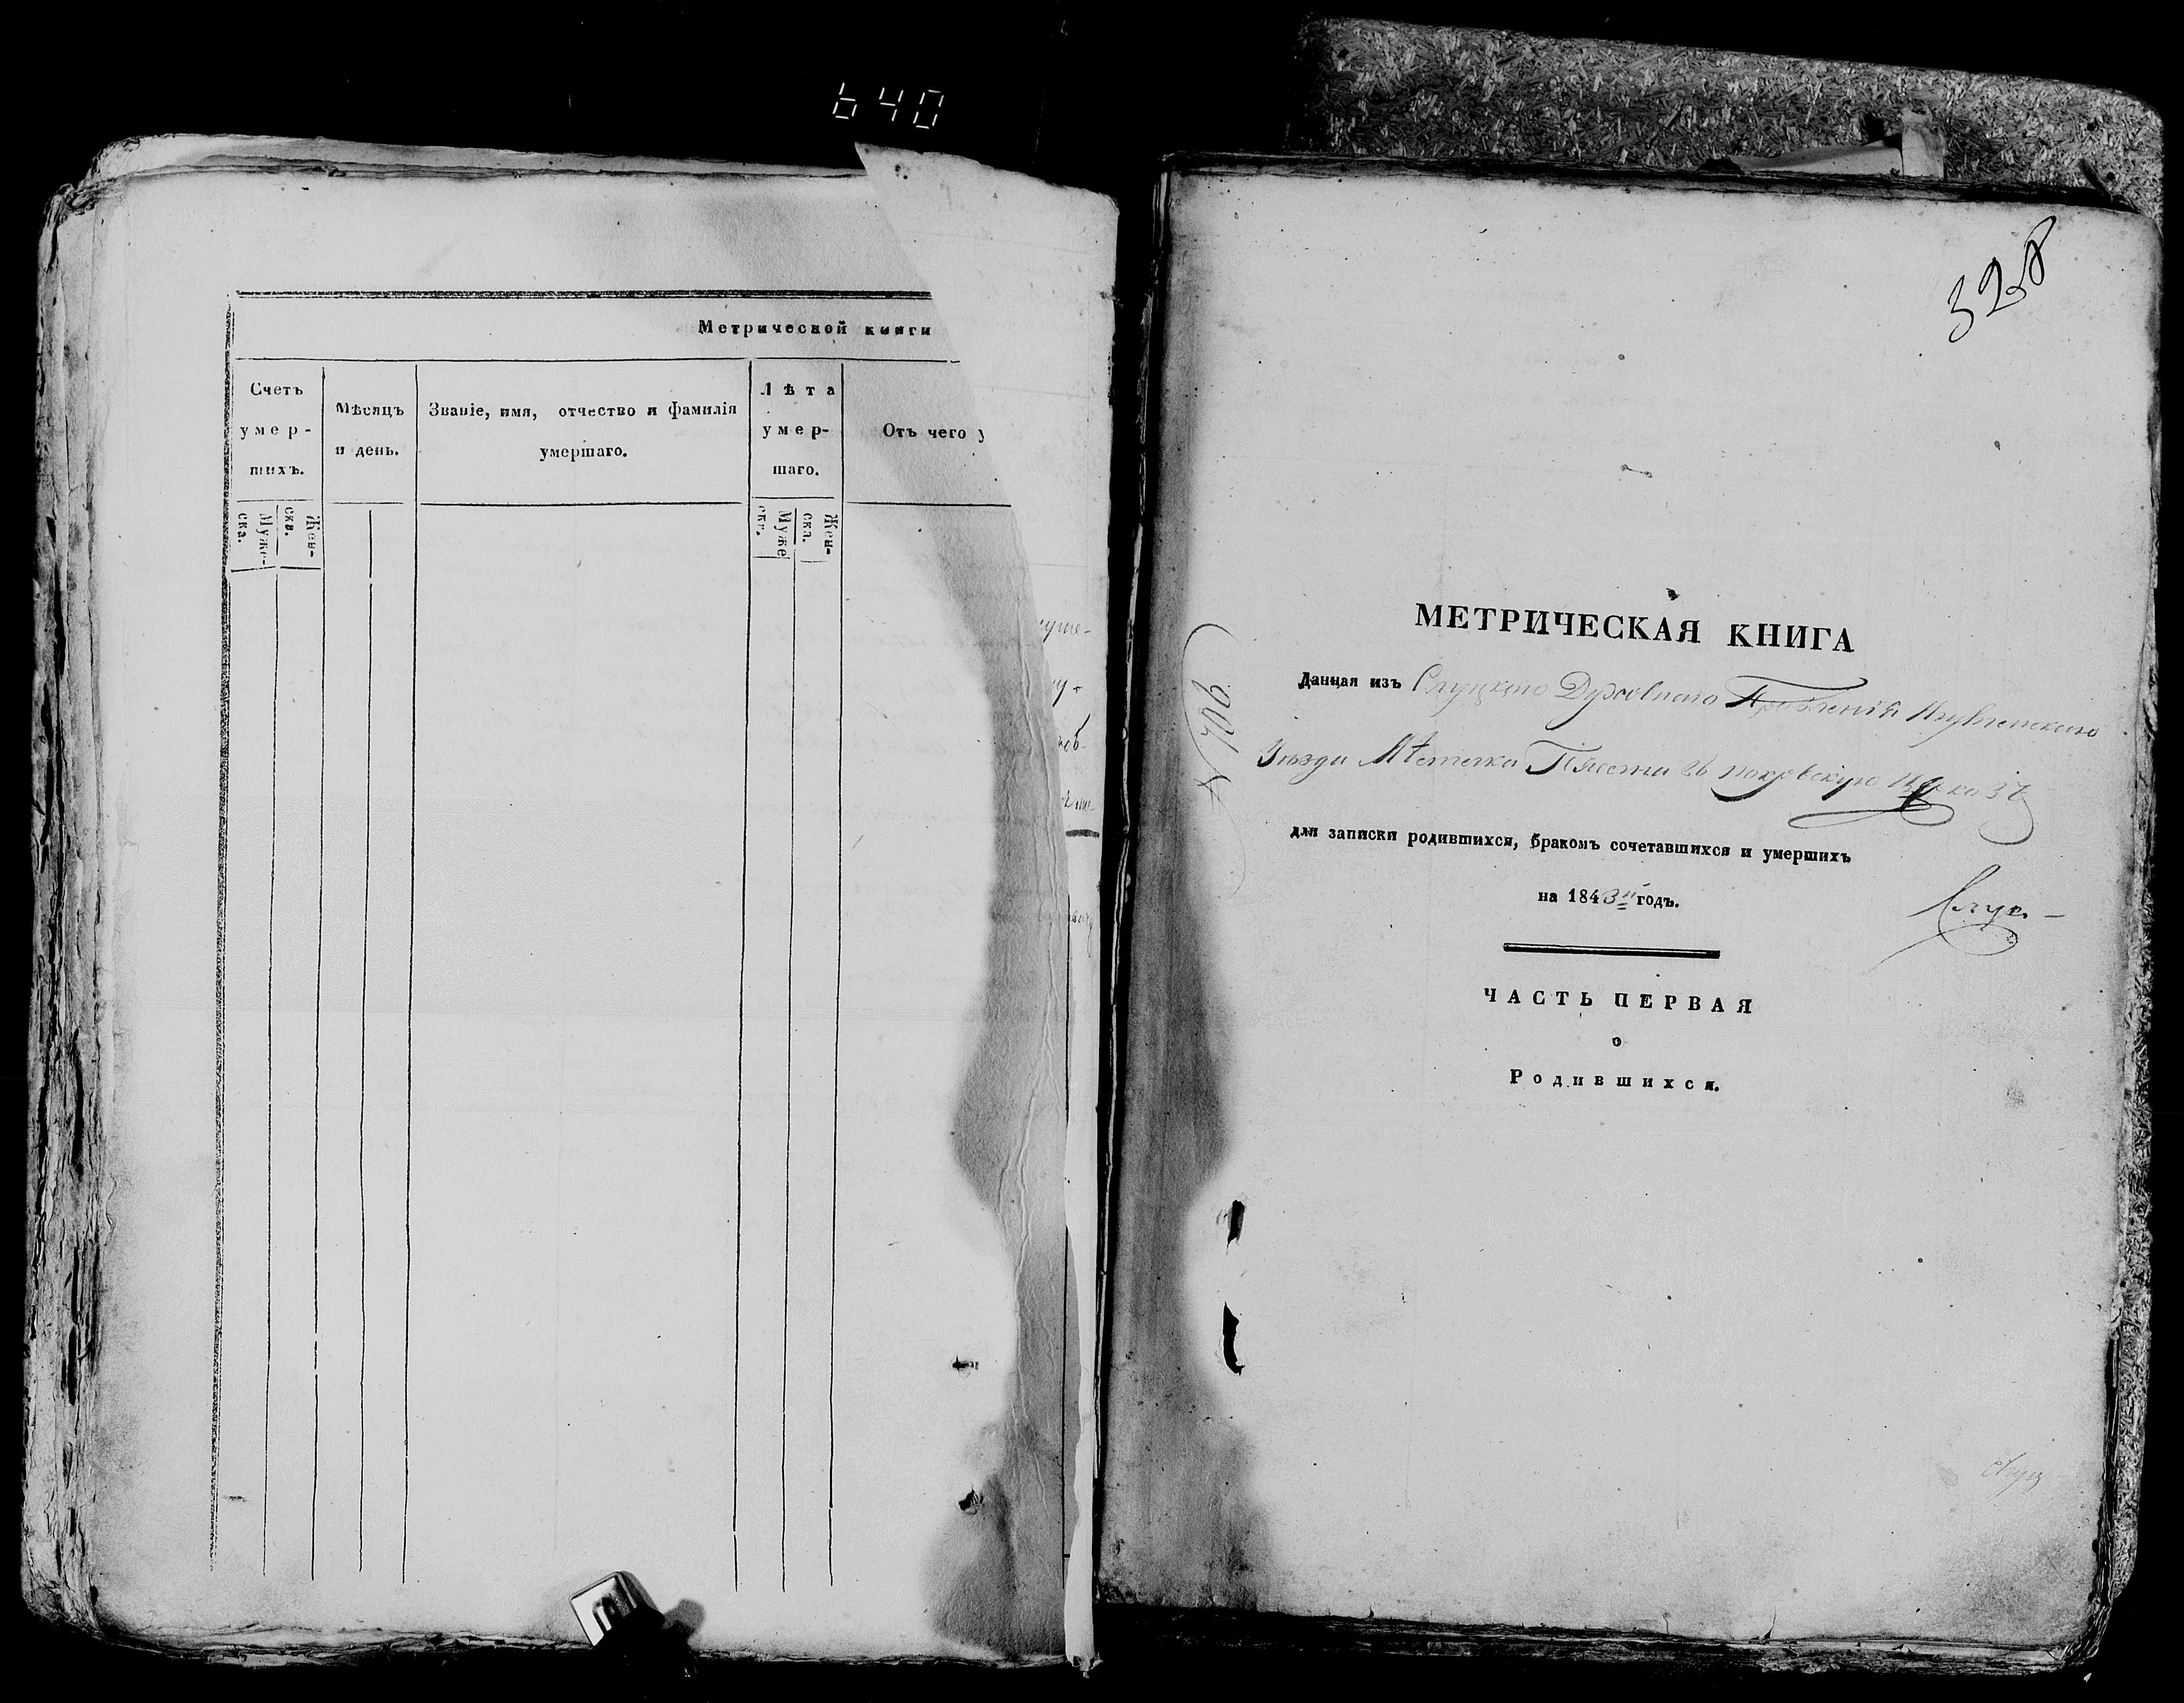 640
Метрической книги
Счетъ
умер-
шихъ.
Муже-
ска.
Жен-
ска.
Мѣсяцъ
и день.
Званіе, имя, отчество и фамилія
умершаго.
Лѣта
умер-
шаго.
Муже
ска.
Жен-
ска.
Отъ чего у
328
МЕТРИЧЕСКАЯ КНИГА
Данная изъ Слуцкаго Духовнаго Правленія Игуменскаго
Уѣзда Мѣстечка въ Покровскую
для записки родившихся, бракомъ сочетавшихся и умершихъ
на 1843й годъ.
ЧАСТЬ ПЕРВАЯ
о
Родившихся.